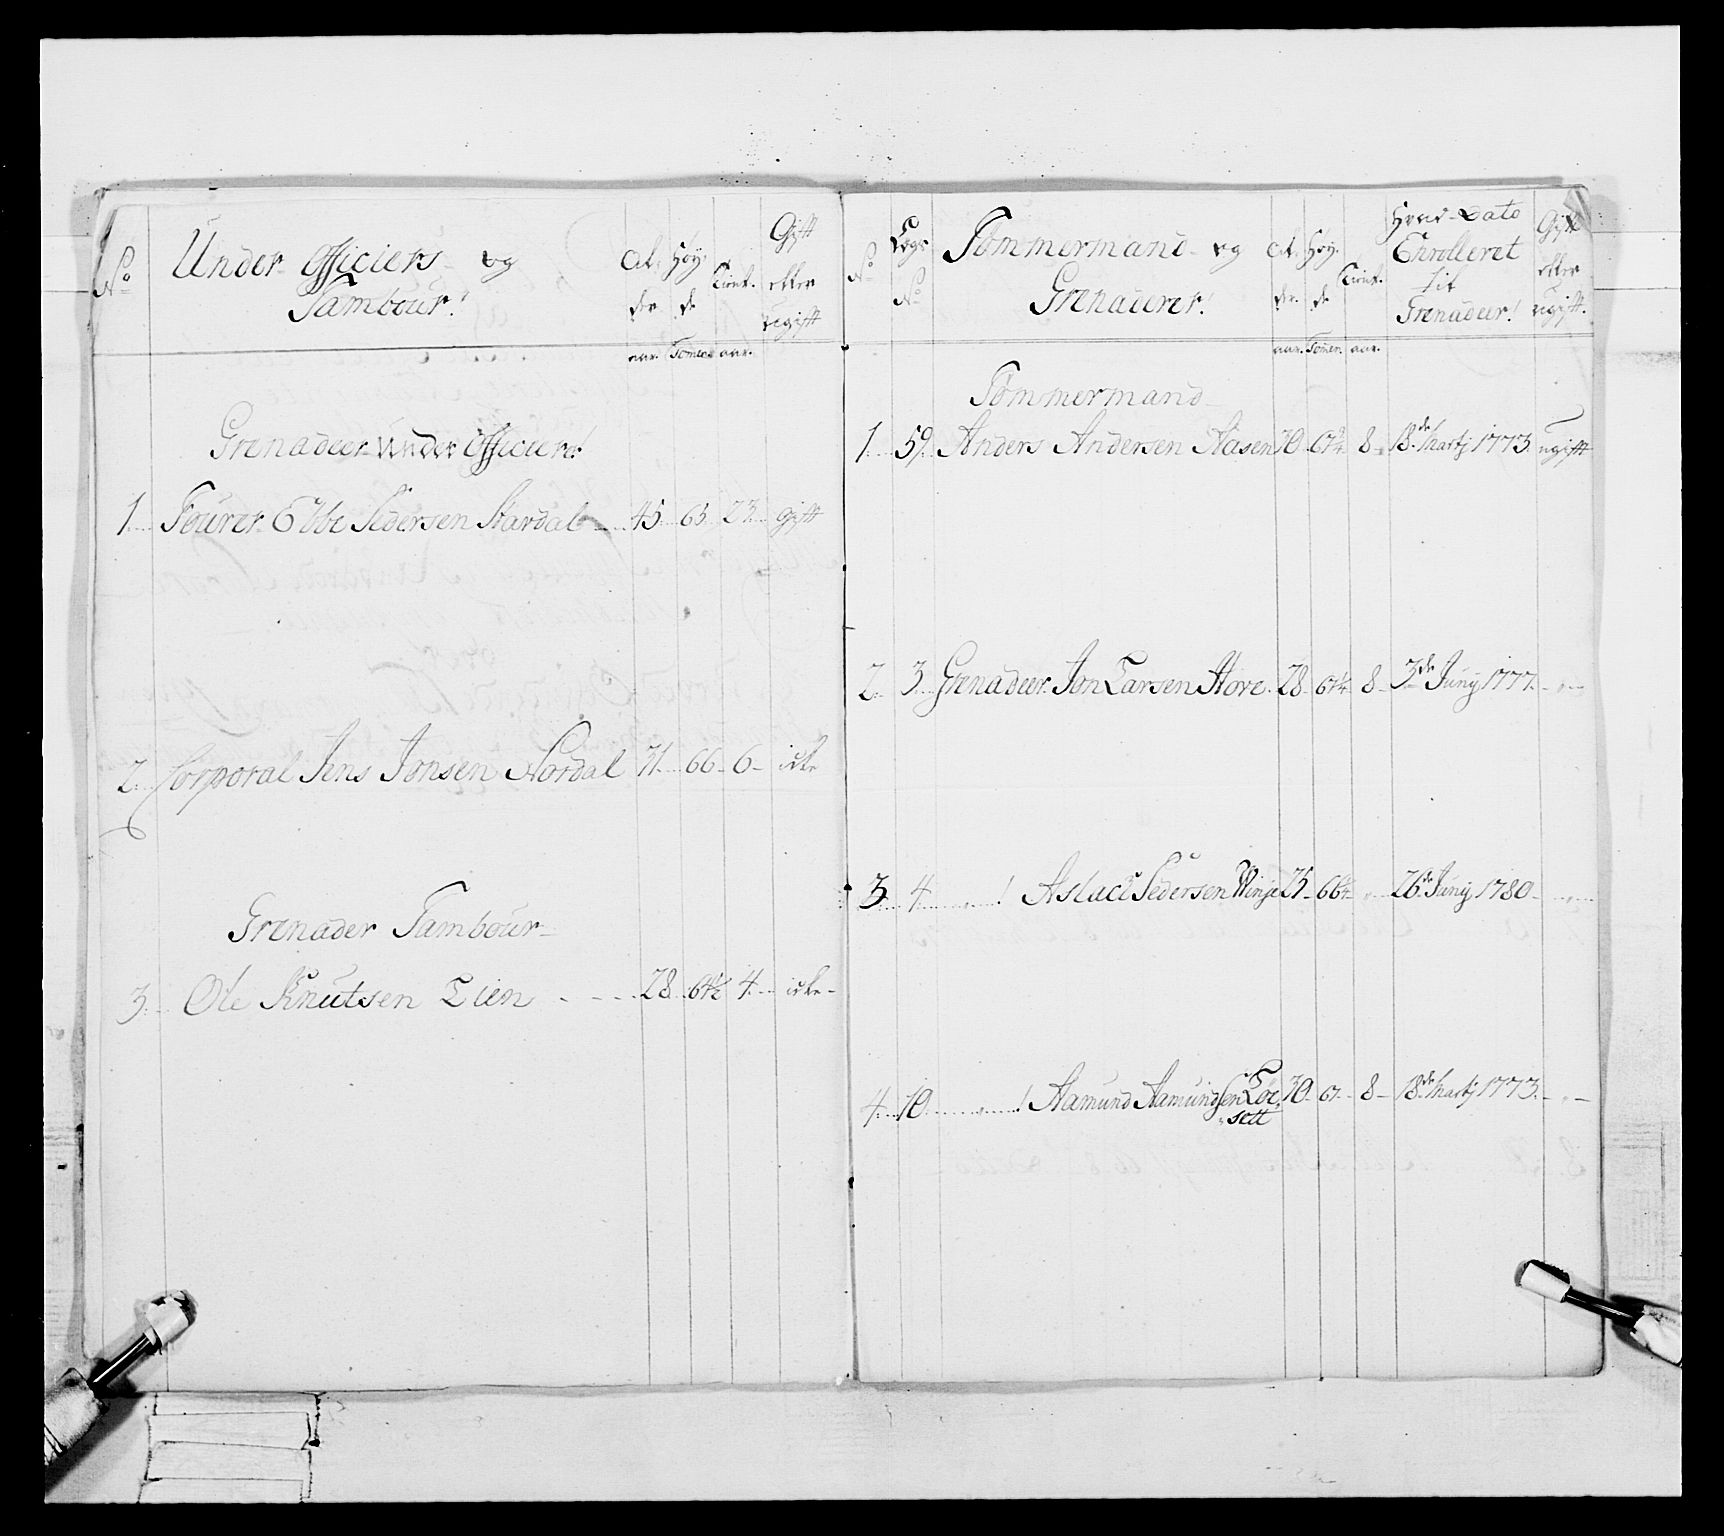 No
Under Officiers og
Tambour!
Al-
der
Höy-
de
Tient.
Gift
eller
ugift
aar. Tomer aar.
Grenadeer Under Officier!
1. Fourer Ebbe Pedersen Stardal 45. 65. 23. gift
2. Corporal Jens Jonsen Nordal 31. 66. 6. icke
Grenader Tambour
3. Ole Knutsen Lien 28. 64½ 4. icke
No
Legs
No
Tömmermand og
Grenaderer!
Al-
der.
Höy-
de
Tient.
Hvad Dato
Enrolleret
til
Grenadeer!
Gift
eller
ugift.
aar. Tomer. aar.
Tömmermand
1. 59. Anders Andersen Aasen 30. 8 18de Martj 1773. ugift
2. 3. Grenadeer. Jon Larsen Hove. 28. 8 3de Juny 1777. - " -
3. 4. " ! Aslack Pedersen Winje 25. " 26de Juny 1780 - " -
4. 10. " ! Aamund Aamundsen Löe- 30. 67. 8 18de Martj 1773. - " -
"sett